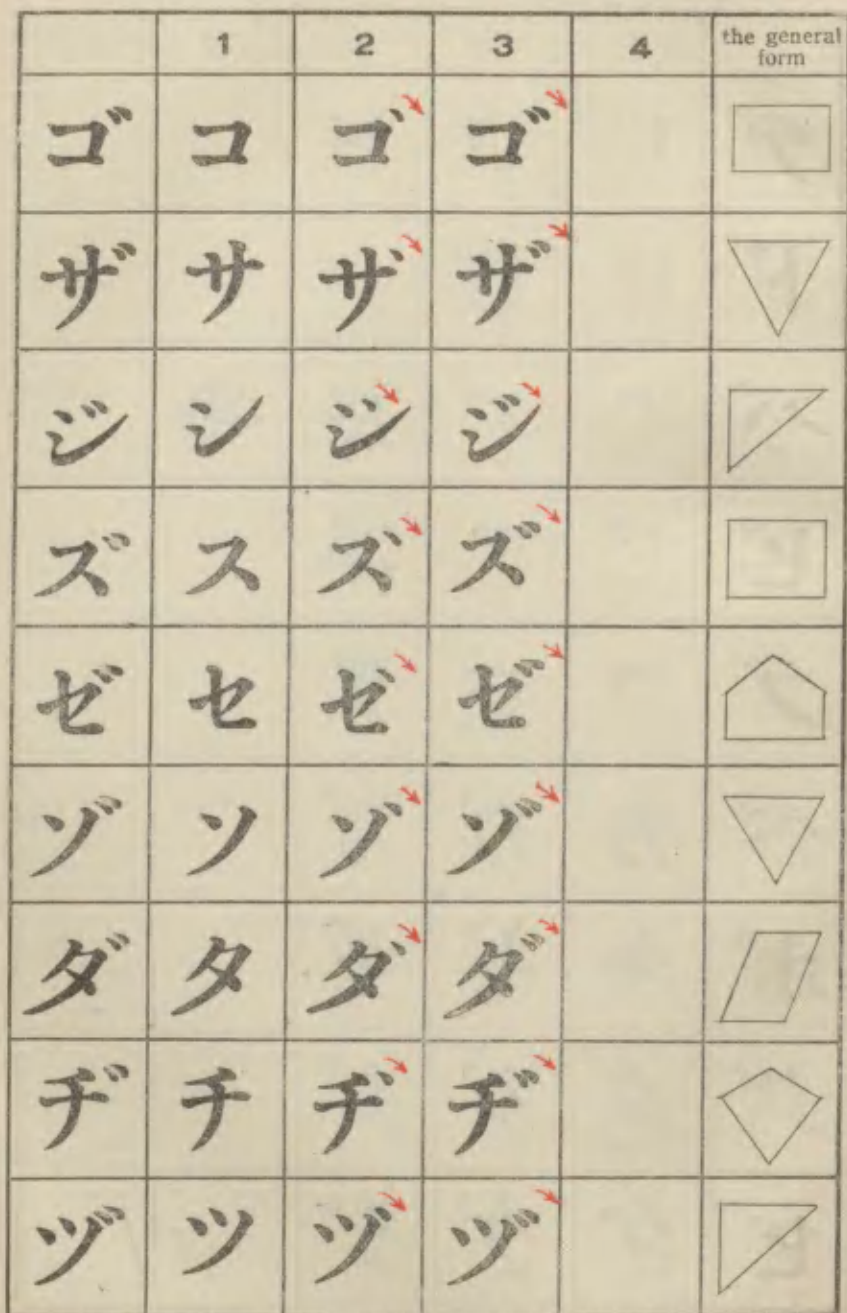 1 2 3 4 the general form
ゴ コ ゴ ゴ
ザ サ ザ ザ
ジ シ ジ ジ
ズ ス ズ ズ
ゼ セ ゼ ゼ
ゾ ソ ゾ ゾ
ダ タ ダ ダ
ヂ チ ヂ ヂ
ヅ ツ ヅ ヅ